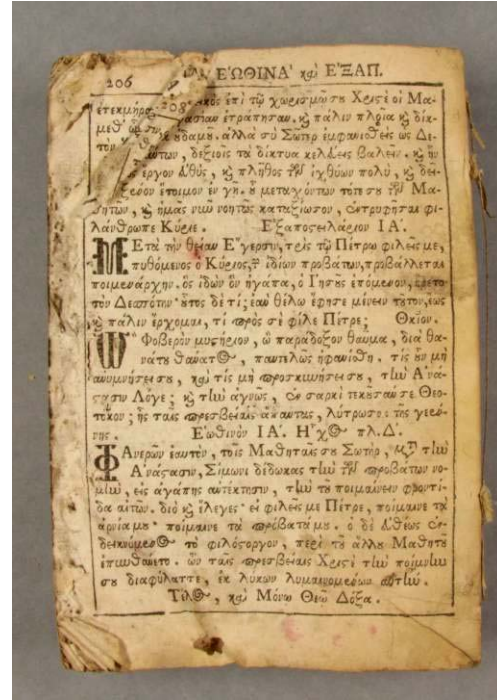 206 ΕΩΘΙΝΑ' καὶ ἘΞΑΠ.
ἐπὶ τῷ χωρισμῷ σου Χριστὲ οἱ Μα-
ἐτράπησαν. καὶ πάλιν πλοῖα καὶ δίκ-
ἀλλὰ σὺ Σωτὴρ ἐμφανισθεὶς ὡς Δε-
δεξιοῖς τὰ δίκτυα κελεύεις βαλεῖν. καὶ ἦν
ἔργον εὐθὺς, καὶ πλῆθος τῶν ἰχθύων πολὺ, καὶ δεῖ-
ἕτοιμον ἐν γῇ. οὗ μετασχόντων τότε σου τῶν Μα-
θητῶν, καὶ ἡμᾶς νῦν νοητῶς καταξίωσον, ἐντρυφῆσαι φι-
λάνθρωπε Κύριε. Ἐξαποστειλάριον ΙΑ'.
ΜΕτὰ τὴν θείαν Ἔγερσιν, τρὶς τῷ Πέτρῳ φιλεῖς με,
πυθόμενος ὁ Κύριος, τῶν ἰδίων προβάτων, προβάλλεται
ποιμενάρχην. ὃς ἰδὼν ὃν ἠγάπα, ὁ Ἰησοῦς ἑπόμενον, ἤρετο
τὸν Δεσπότην· οὗτος δὲ τί; ἐὰν θέλω ἔφησε μένειν τοῦτον, ἕως
καὶ πάλιν ἔρχομαι, τί πρὸς σὲ φίλε Πέτρε; Θκίον.
Ὢ Φοβερὸν μυστήριον, ὢ παράδοξον θαῦμα, διὰ θα-
νάτου θάνατος, παντελῶς ἠφανίσθη. τίς οὖν μὴ
ἀνυμνήσει σου, καὶ τίς μὴ προσκυνήσει σου, τὴν Ἀνά-
στασιν Λόγε; καὶ τὴν ἁγνῶς, ἐν σαρκὶ τεκοῦσάν σε Θεο-
τόκον; ἧς ταῖς πρεσβείαις ἅπαντας, λύτρωσαι τῆς γεέν-
νης. Ἑωθινὸν ΙΑ'. Ἦχος πλ. Δ'.
ΦΑνερῶν ἑαυτὸν, τοῖς Μαθηταῖς σου Σωτὴρ, μετὰ τὴν
Ἀνάστασιν, Σίμωνι δέδωκας τὴν τῶν προβάτων νο-
μὴν, εἰς ἀγάπης ἀντέκτησιν, τὴν τοῦ ποιμαίνειν φροντί-
δα αἰτῶν. διὸ καὶ ἔλεγες· εἰ φιλεῖς με Πέτρε, ποίμαινε τὰ
ἀρνία μου· ποίμαινε τὰ πρόβατά μου. ὁ δὲ εὐθέως ἐν-
δεικνύμενος τὸ φιλόστοργον, περὶ τοῦ ἄλλου Μαθητοῦ
ἐπυνθάνετο. ὧν ταῖς πρεσβείαις Χριστὲ τὴν ποίμνην
σου διαφύλαττε, ἐκ λύκων λυμαινομένων αὐτήν.
Τέλος, καὶ Μόνῳ Θεῷ Δόξα.